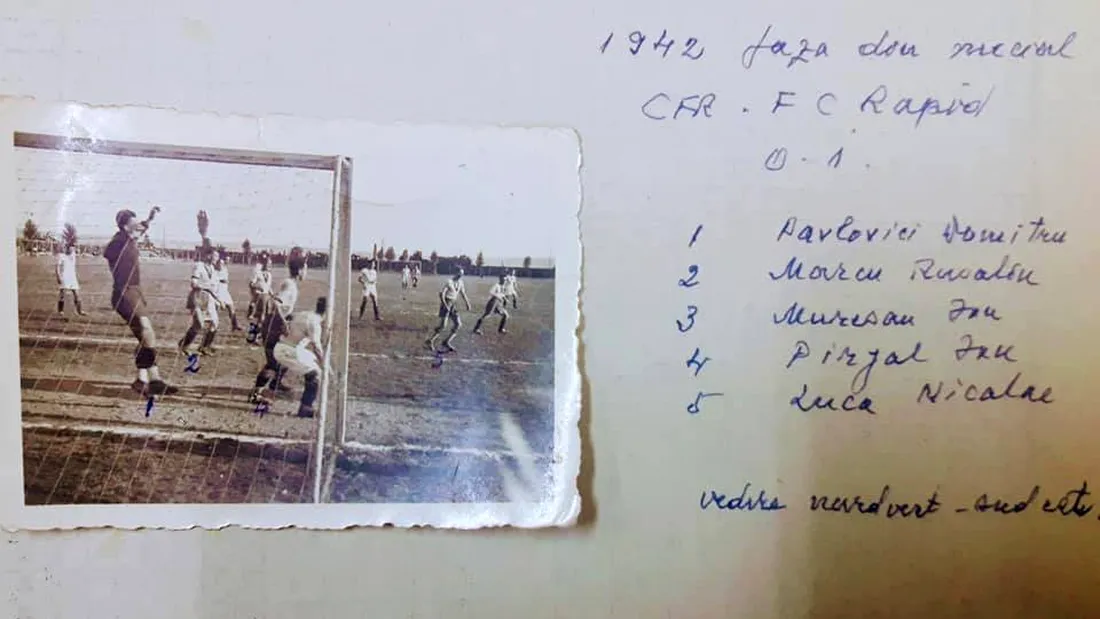 1942 faza din meciul
CFR . F C Rapid
0 - 1 .
1 Pavlovici Dumitru
2 Marcu
3 Muresan Ion
4 Pirjal Ion
5 Luca Nicolae
vedere nordvest - sud est
3
2
5
1
4